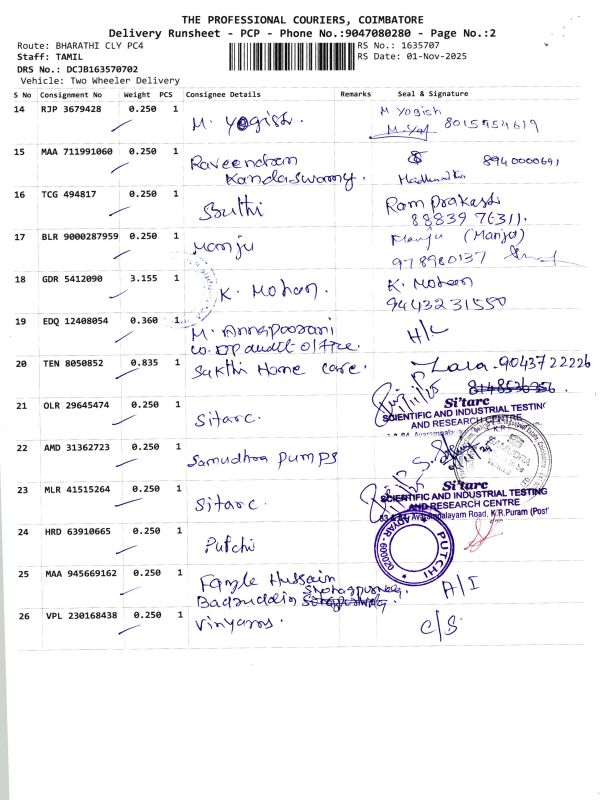 THE PROFESSIONAL COURIERS, COIMBATORE
Delivery Runsheet - PCP - Phone No.:9047080280 - Page No.:2
Route: BHARATHI CLY PC4 RS No.: 1635707
Staff: TAMIL RS Date: 01-Nov-2025
DRS No.: DCJB163570702
Vehicle: Two Wheeler Delivery
S No Consignment No Weight PCS Consignee Details Remarks Seal & Signature
14 RJP 3679428 0.250 1 M. Yogish. M Yogish
8015954619
15 MAA 711991060 0.250 1 Raveendran 8940000691
Kandaswamy.
16 TCG 494817 0.250 1 Ram Prakash
88839 76311.
17 BLR 9000287959 0.250 1 Manju (Manju)
978980137
18 GDR 5412090 3.155 1 K. Mohan. K. Mohan
9443231550
19 EDQ 12408054 0.360 1 M. Annapoorani H/L
co.op audit office.
20 TEN 8050852 0.835 1 Sakthi Home care. Zara. 9043722226
21 OLR 29645474 0.250 1 Sitarc. 1/11/25
Si'tarc
SCIENTIFIC AND INDUSTRIAL TESTING
AND RESEARCH CENTRE
22 AMD 31362723 0.250 1 Samudhra pumps
23 MLR 41515264 0.250 1 Sitarc.
Si'tarc
SCIENTIFIC AND INDUSTRIAL TESTING
AND RESEARCH CENTRE
Avarampalayam Road, K.R.Puram (Post
24 HRD 63910665 0.250 1 Putchi
PUTCHI
ADYAR
25 MAA 945669162 0.250 1 Fazle Hussain A/I
Badruddin
26 VPL 230168438 0.250 1 C/S